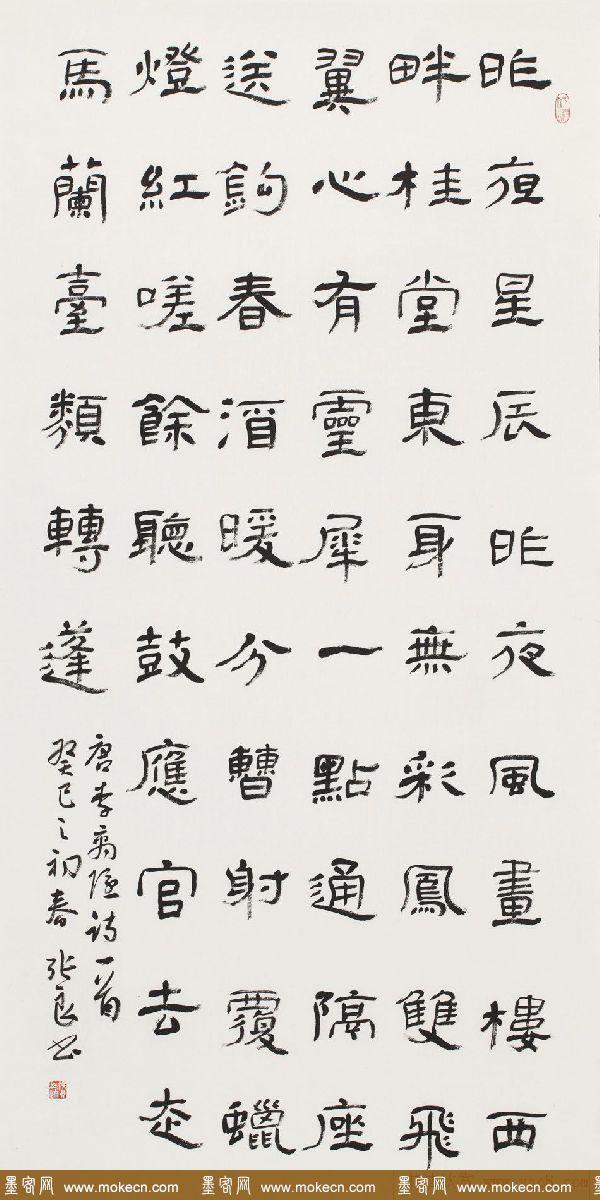 昨夜星辰昨夜風畫樓西
畔桂堂東身無彩鳳雙飛
翼心有靈犀一點通隔座
送鉤春酒暖分曹射覆蠟
燈紅嗟餘聽鼓應官去走
馬蘭臺類轉蓬
唐李商隱詩一首
癸巳之初春張良書
墨客网 www.mokecn.com 墨客网 www.mokecn.com 墨客网 www.mokecn.com 墨客网 www.mokecn.com